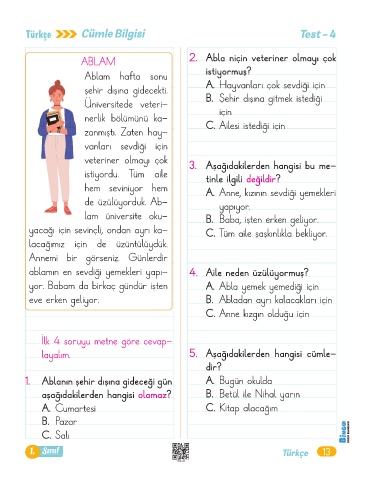 Türkçe
Cümle Bilgisi
Test - 4
ABLAM
Ablam hafta sonu
şehir dışına gidecekti.
Üniversitede veteri-
nerlik bölümünü ka-
zanmıştı. Zaten hay-
vanları sevdiği için
veteriner olmayı çok
istiyordu. Tüm aile
hem seviniyor hem
de üzülüyorduk. Ab-
lam üniversite oku-
yacağı için sevinçli, ondan ayrı ka-
lacağımız için de üzüntülüydük.
Annemi bir görseniz. Günlerdir
ablamın en sevdiği yemekleri yapı-
yor. Babam da birkaç gündür işten
eve erken geliyor.
İlk 4 soruyu metne göre cevap-
layalım.
1. Ablanın şehir dışına gideceği gün
aşağıdakilerden hangisi olamaz?
A. Cumartesi
B. Pazar
C. Salı
2. Abla niçin veteriner olmayı çok
istiyormuş?
A. Hayvanları çok sevdiği için
B. Şehir dışına gitmek istediği
için
C. Ailesi istediği için
3. Aşağıdakilerden hangisi bu me-
tinle ilgili değildir?
A. Anne, kızının sevdiği yemekleri
yapıyor.
B. Baba, işten erken geliyor.
C. Tüm aile şaşkınlıkla bekliyor.
4. Aile neden üzülüyormuş?
A. Abla yemek yemediği için
B. Abladan ayrı kalacakları için
C. Anne kızgın olduğu için
5. Aşağıdakilerden hangisi cümle-
dir?
A. Bugün okulda
B. Betül ile Nihal yarın
C. Kitap alacağım
1. Sınıf
Türkçe
13